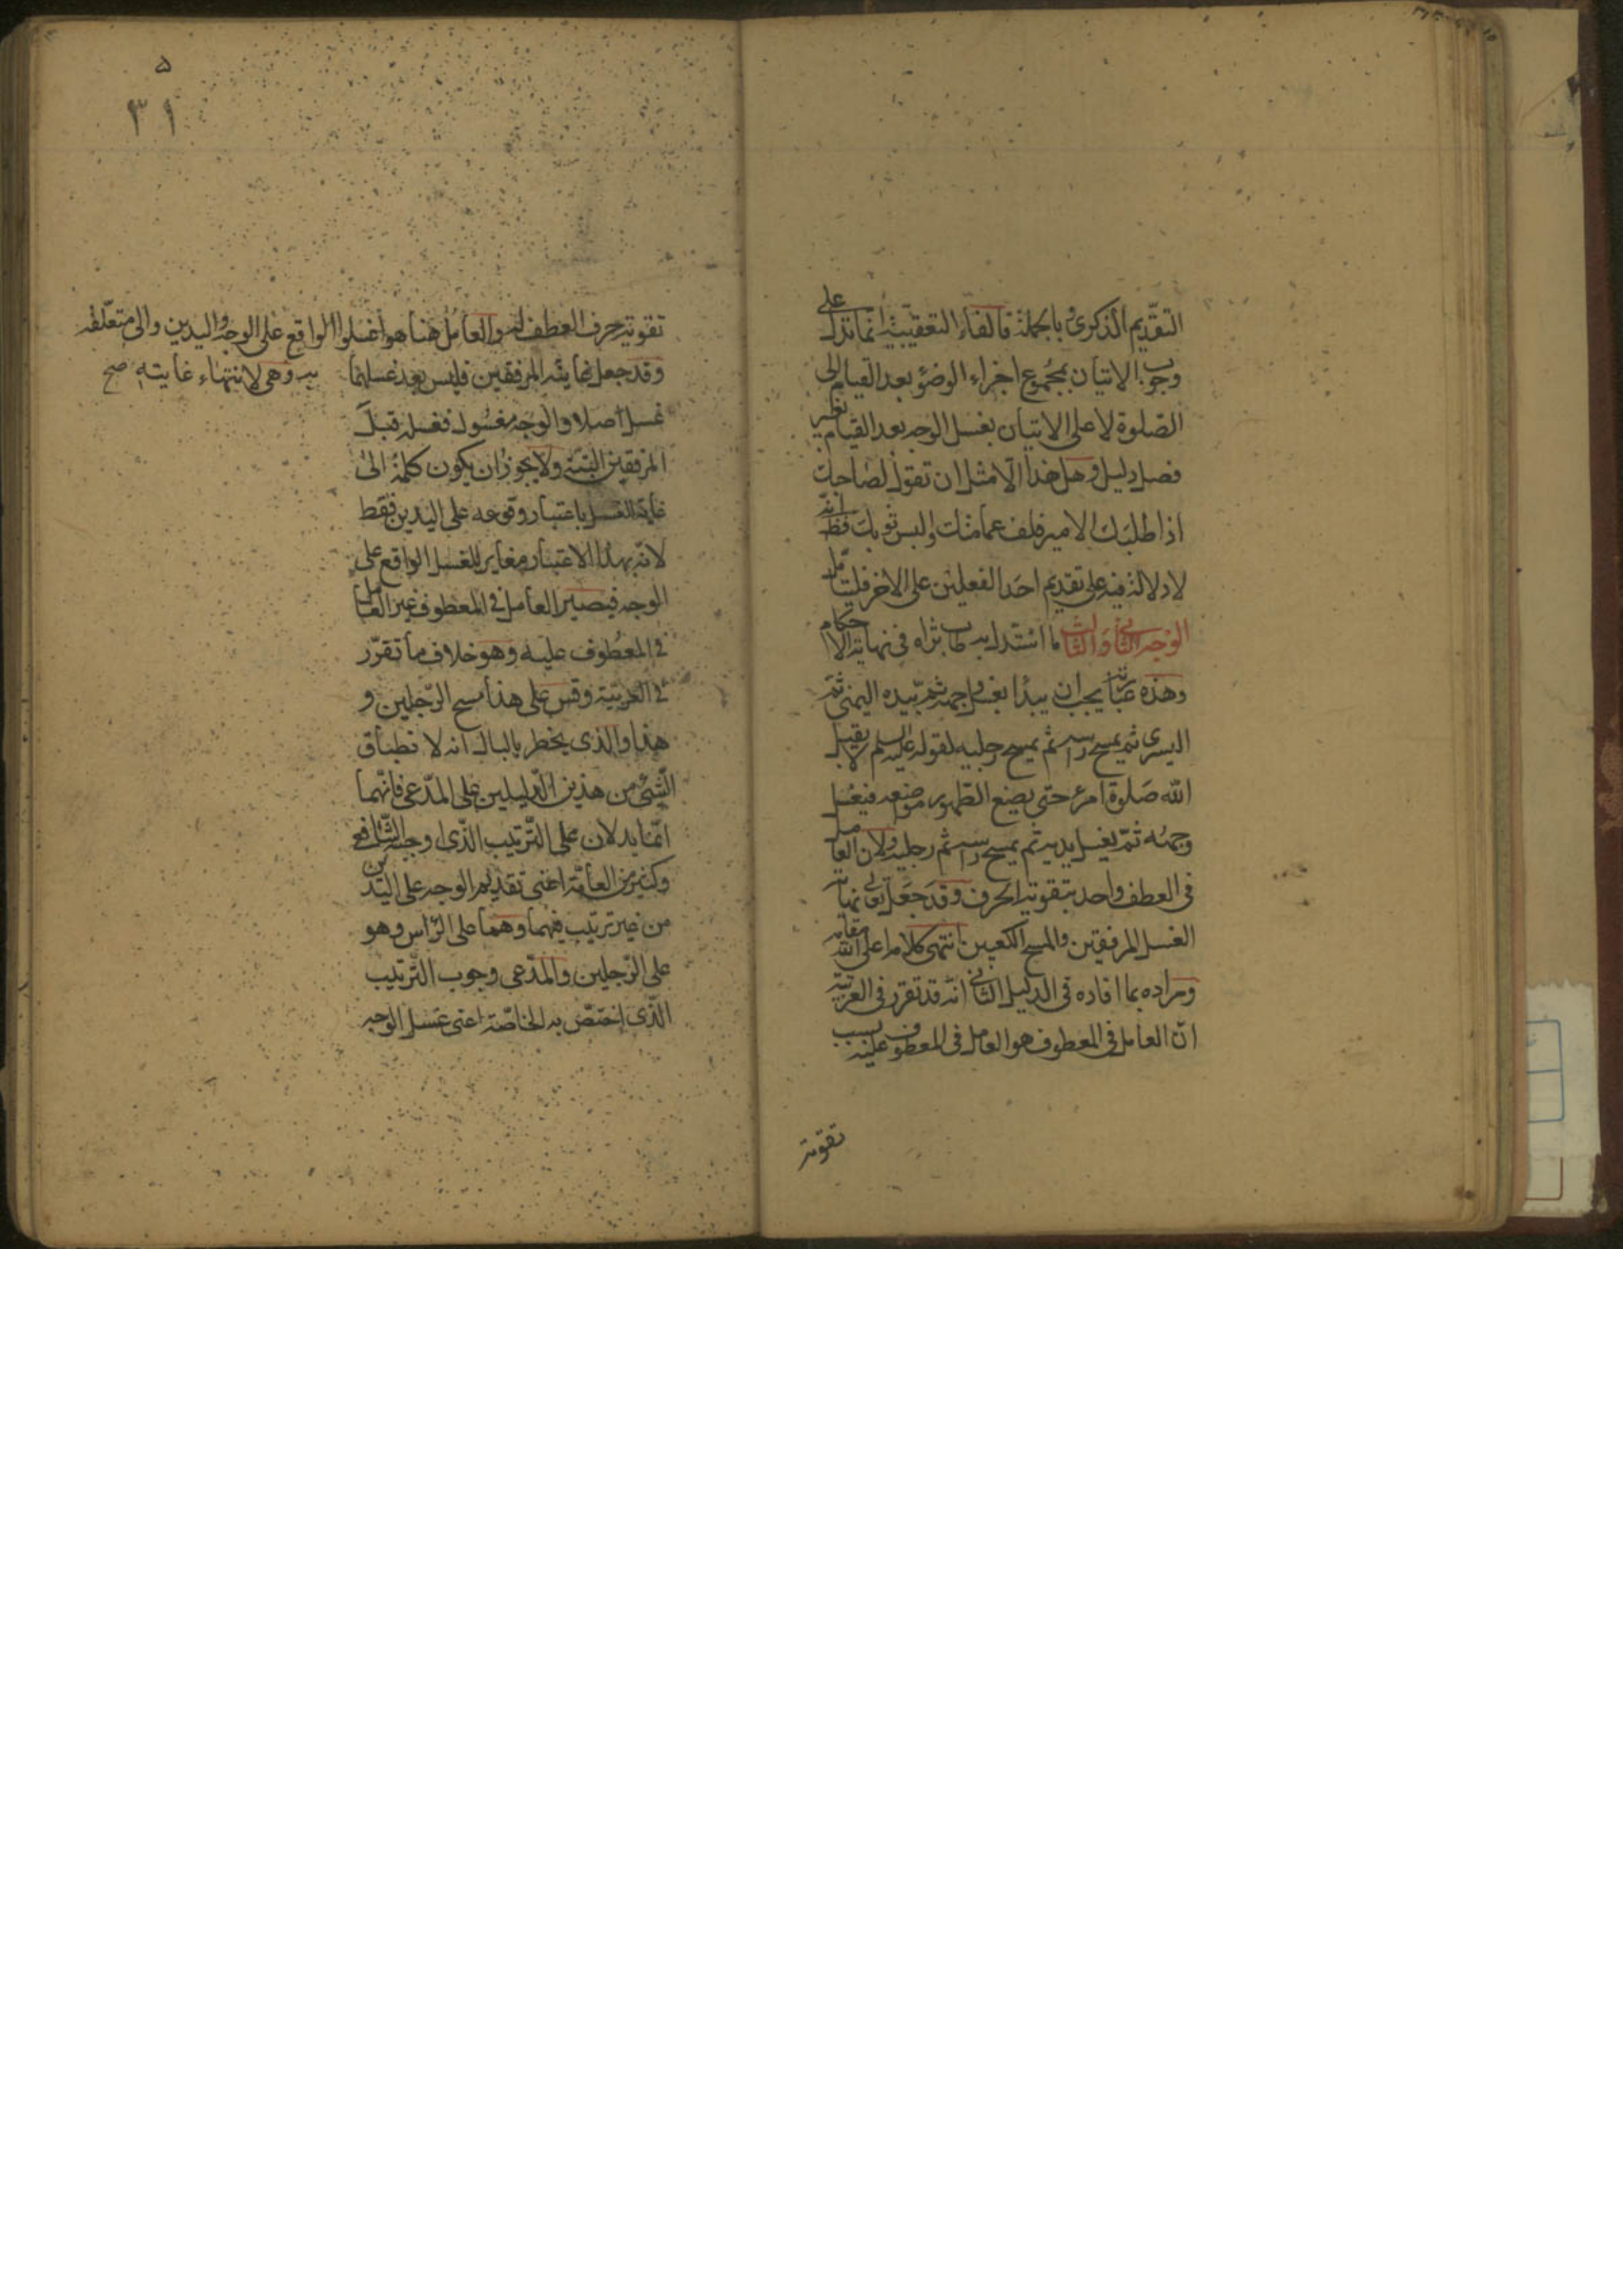 التقديم الذكرى وبالجملة فالفاء التعقيبية انما تدل على
وجوب الاتيان بمجموع اجزاء الوضؤ بعد القيام الى
الصلوة لا على الاتيان بغسل الوجه بعد القيام بغير
فصل دليل وهل هذا الا مثل ان تقول لصاحبك
اذا طلبك الامير فلف عمامتك والبس ثوبك فظ انه
لا دلالة فيه على تقديم احد الفعلين على الاخر فليتامل
الوجه الثانى والثالث ما استدل به طاب ثراه فى نهاية الاحكام
وهذه عبارته يجب ان يبدا بغسل وجهه ثم بيده اليمنى ثم
اليسرى ثم يمسح راسه ثم يمسح رجليه لقوله عليه السلم لا يقبل
الله صلوة امرء حتى يضع الطهور مواضعه فيغسل
وجهه ثم يغسل يديه ثم يمسح راسه ثم رجليه ولان العامل
فى العطف واحد بتقوية الحرف وقد جعل تعالى نهاية
الغسل المرفقين والمسح الكعبين انتهى كلامه اعلى الله مقامه
ومراده بما افاده فى الدليل الثانى انه قد تقرر فى العربية
ان العامل فى المعطوف هو العامل فى المعطوف عليه بسبب
تقوية
۵
۳۱
تقوية حرف العطف له والعامل هنا هو اغسلوا الواقع على الوجه واليدين والى متعلقة
به وهى لانتهاء غايته صح
وقد جعل غايته المرفقين فليس بعد غسلهما
غسل اصلا والوجه مغسول فغسله قبل
المرفقين البتة ولا يجوز ان يكون كلمة الى
غاية الغسل باعتبار وقوعه على اليدين فقط
لانه بهذا الاعتبار مغاير للغسل الواقع على
الوجه فيصير العامل فى المعطوف غير العامل
فى المعطوف عليه وهو خلاف ما تقرر
فى العربية وقس على هذا مسح الرجلين و
هذا والذى يخطر بالبال انه لا تطباق
الشئ من هذين الدليلين على المدعى فانهما
انما يدلان على الترتيب الذى اوجبه الشافعى
وكثير من العامة اعنى تقديم الوجه على اليدين
من غير ترتيب فيهما وهما على الراس وهو
على الرجلين والمدعى وجوب الترتيب
الذى اختص به الخاصة اعنى غسل الوجه